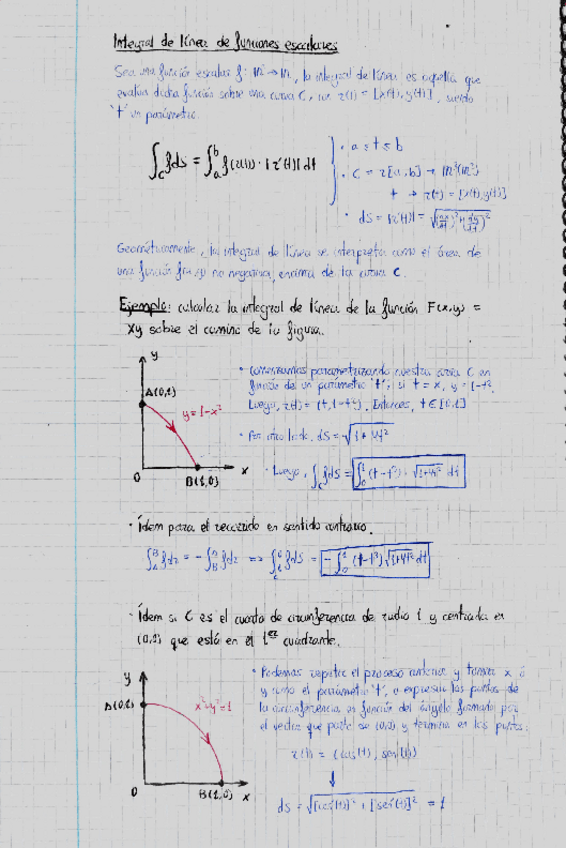 Integral de línea de funciones escalares
Sea una función escalar f: ℝ² → ℝ, la integral de línea es aquella que
evalua dicha función sobre una curva C, con r(t) = [x(t), y(t)], siendo
't' un parámetro.
∫_C f ds = ∫_a^b f(r(t)) · |r'(t)| dt
· a ≤ t ≤ b
· C = r[a, b] → ℝ³(ℝ²)
t → r(t) = [x(t), y(t)]
· ds = |r'(t)| = √((dx/dt)² + (dy/dt)²)
Geométricamente, la integral de línea se interpreta como el área de
una función no negativa, encima de la curva C.
Ejemplo: calcular la integral de línea de la función F(x,y) =
xy sobre el camino de la figura.
y
A(0,1)
y = 1-x²
0
B(1,0)
x
· Comenzamos parametrizando nuestra curva C en
función de un parámetro 't'; si t = x, y = 1-t².
Luego, r(t) = (t, 1-t²). Entonces, t ∈ [0,1]
· Por otro lado, ds = √(1+4t²)
· Luego, ∫_C f ds = ∫_0^1 (t-t³) · √(1+4t²) dt
· Ídem para el recorrido en sentido contrario.
= - ∫_0^1 (t-t³) √(1+4t²) dt
· Ídem si C es el cuarto de circunferencia de radio 1 y centrada en
que está en el 1er cuadrante.
y
A(0,1)
x²+y²=1
0
B(1,0)
x
· Podemos repetir el proceso anterior y tomar x ó
y como el parámetro 't', o expresar los puntos de
la circunferencia en función del ángulo formado por
el vector que parte de (0,0) y termina en los puntos:
r(t) = (cos(t), sen(t))
↓
ds = = 1